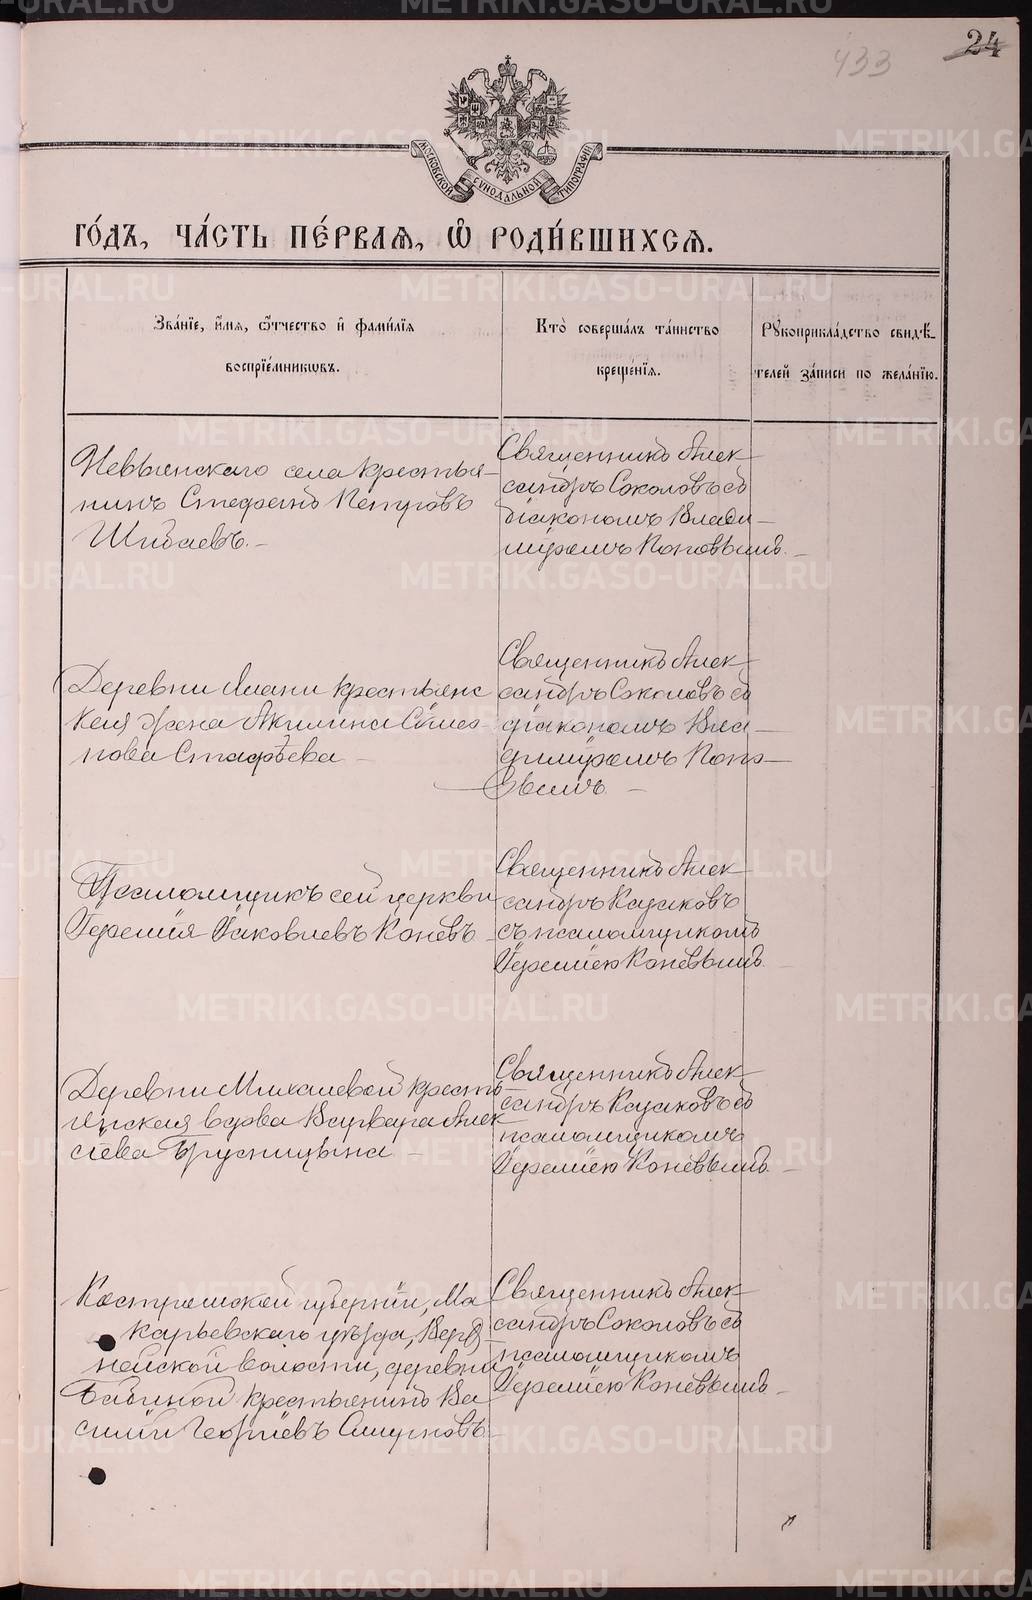 433
24
МОСКОВСКОЙ СѴНОДАЛЬНОЙ ТИПОГРАФІИ
ГО́ДЪ, ЧА́СТЬ ПЕ́РВАѦ, Ѡ҆ РОДИ́ВШИХСѦ.
Зва́нїе, и҆́мѧ, ѻ҆́тчество и҆ фами́лїѧ
воспрїе́мникѡвъ.
Кто̀ соверша́лъ та́инство
креще́нїѧ.
Рꙋкоприкла́дство свидѣ́-
телей за́писи по жела́нїю.
села крестья-
нинъ Стефанъ Петровъ
Шибаевъ.
Священникъ Алек-
сандръ Соколовъ съ
діакономъ Влади-
міромъ Поповымъ.
Деревни крестьянс
кая жена Акилина Симео-
нова Стафѣева
Священникъ Алек-
сандръ Соколовъ съ
діакономъ Вла-
димїромъ Попо-
вымъ.
Псаломщикъ сей церкви
Іеремія Іаковлевъ Коневъ
Священникъ Алек-
сандръ Казаковъ
съ псаломщикомъ
Іереміею Коневымъ.
Деревни Михалевой кресть-
янская вдова Варвара Алек
сіева Брусницына
Священникъ Алек-
сандръ Казаковъ съ
псаломщикомъ
Іереміею Коневымъ.
Костромской губерніи, Ма
карьевскаго уѣзда,
волости, деревни
крестьянинъ Ва
силій Георгіевъ Смирновъ
Священникъ Алек-
сандръ Соколовъ съ
псаломщикомъ
Іереміею Коневымъ
METRIKI.GASO-URAL.RU